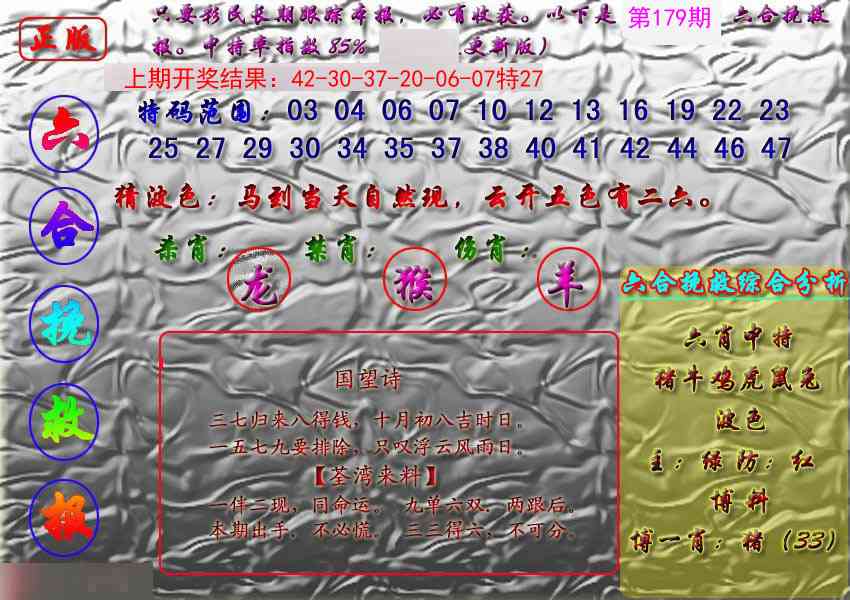 正版
只要彩民长期跟踪本报，必有收获。以下是 第179期 六合挽救
报。中特率指数85% 更新版）
上期开奖结果：42-30-37-20-06-07特27
六合挽救报
特码范围：03 04 06 07 10 12 13 16 19 22 23
25 27 29 30 34 35 37 38 40 41 42 44 46 47
猜波色：马到当天自然现，云开五色有二六。
杀肖：龙 禁肖：猴 伤肖：羊
国望诗
三七归来八得钱，十月初八吉时日。
一五七九要排除，只叹浮云风雨日。
【荃湾来料】
一伴二现，同命运。 九单六双，两跟后。
本期出手，不必慌。 三三得六，不可分。
六合挽救综合分析
六肖中特
猪牛鸡虎鼠兔
波色
主：绿 防：红
博料
博一肖：猪（33）